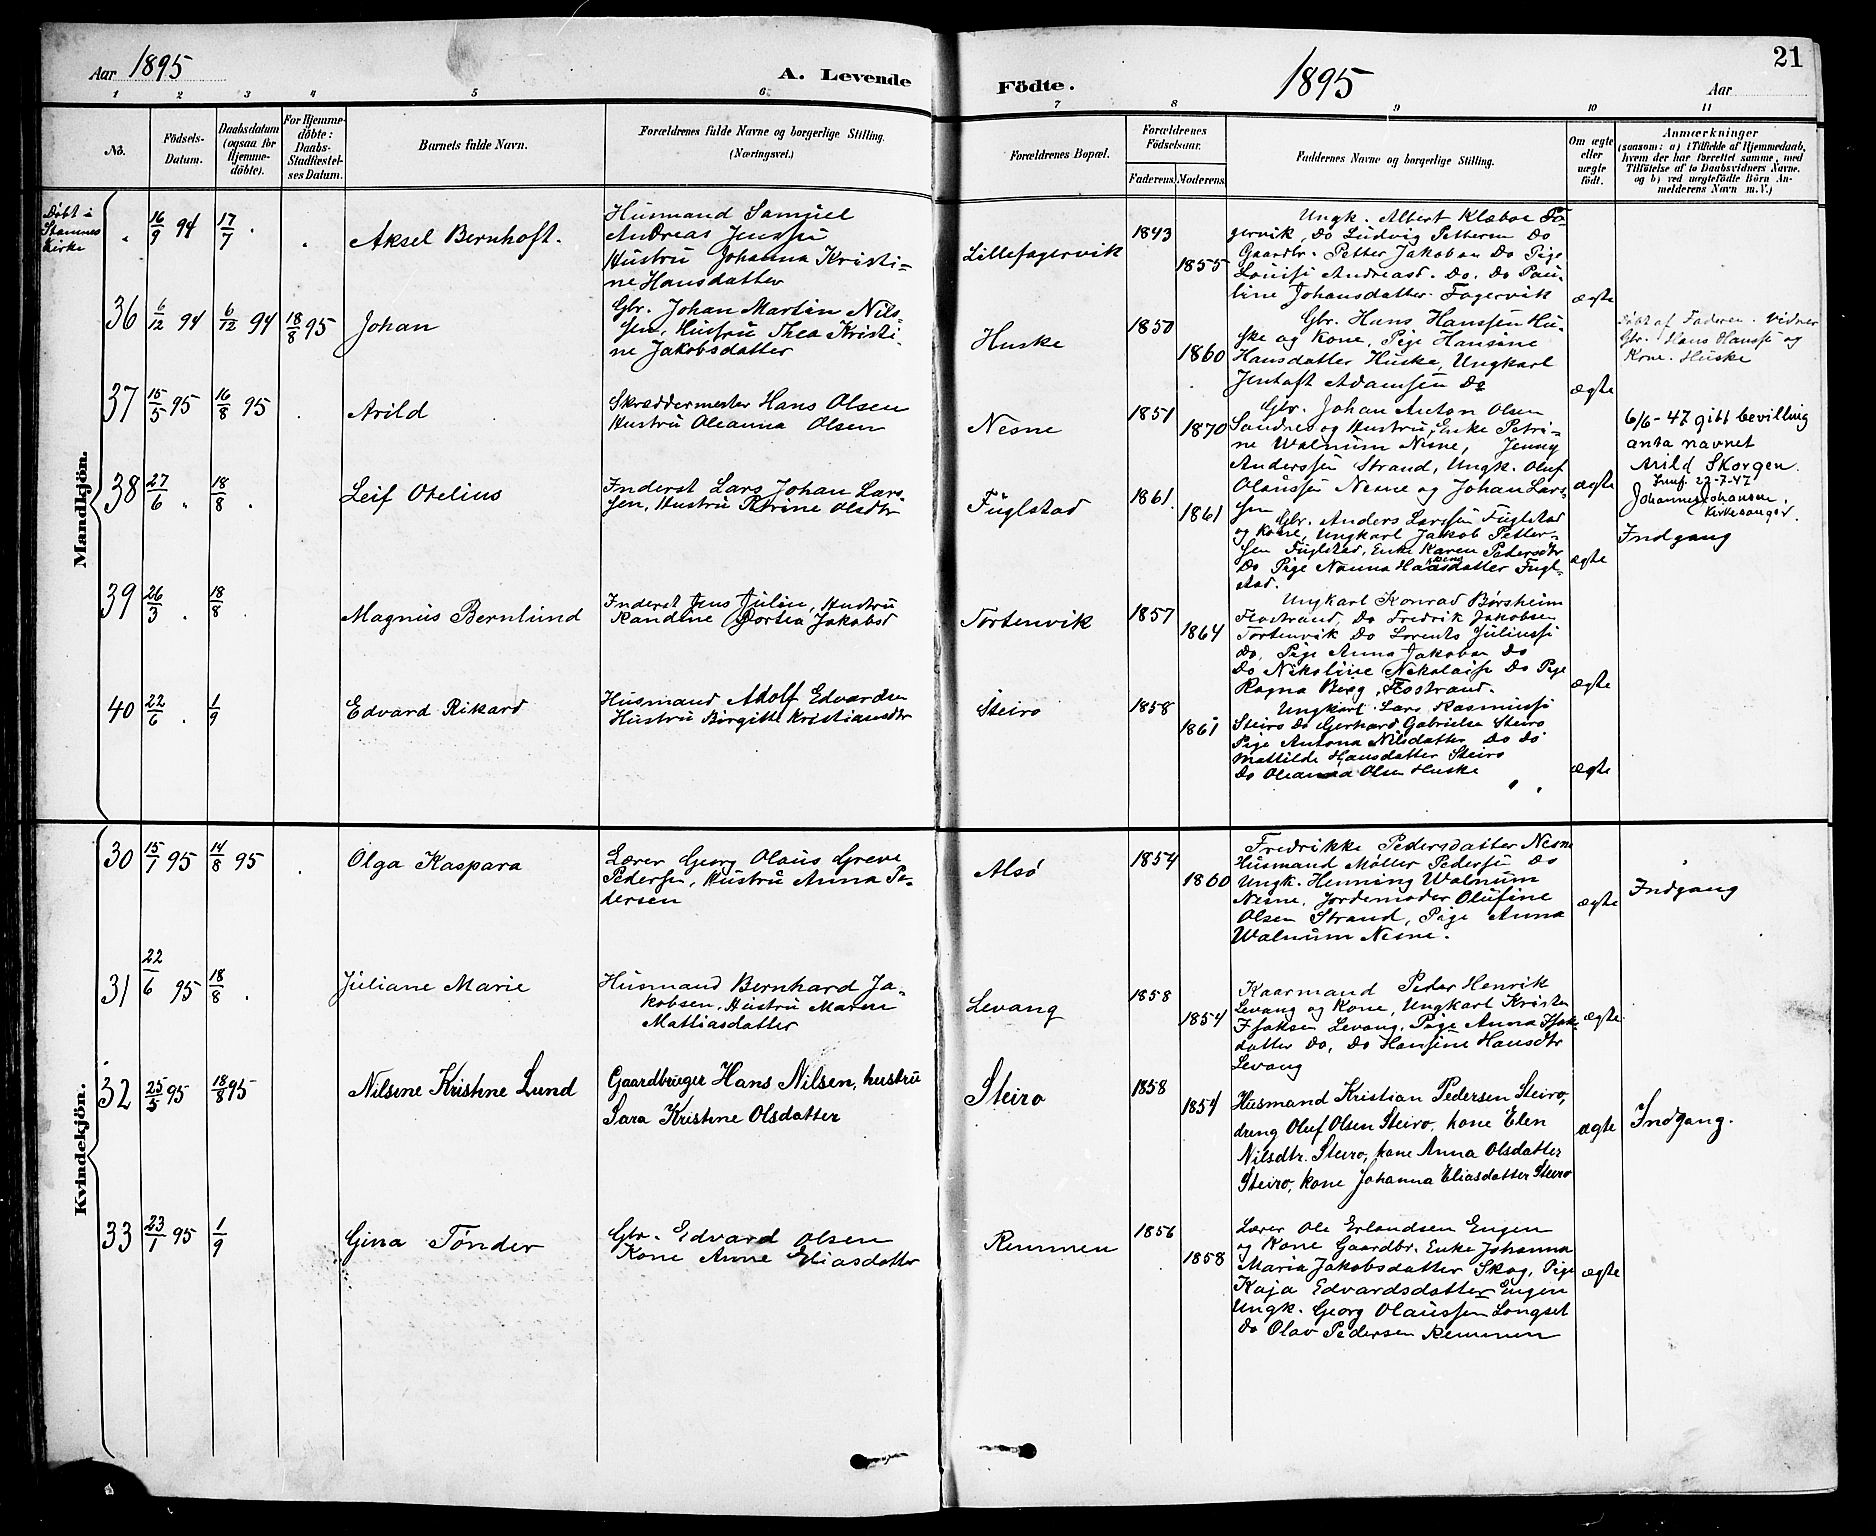 Aar 1895
A. Levende
Födte.
1895
Aar
21
1 2 3 4 5 6 7 8 9 10 11
No.
Födsels-
Datum.
Daabsdatum
(ogsaa for
Hjemme-
döbte).
For Hjemme-
döbte:
Daabs-
Stadfæstel-
ses Datum.
Barnets fulde Navn.
Forældrenes fulde Navne og borgerlige Stilling.
(Næringsvei.)
Forældrenes Bopæl.
Forældrenes
Födselsaar.
Faderens. Moderens.
Faddernes Navne og borgerlige Stilling.
Om ægte
eller
uægte
födt.
Anmærkninger
(saasom: a) i Tilfælde af Hjemmedaab,
hvem der har forrettet samme, med
Tilföielse af to Daabsvidners Navne.
og b) ved uægtefödte Börn An-
melderens Navn m. V.)
Mandkjön.
Döbt i
Stamnes
Kirke
16/9 94 17/7
Aksel Bernhoft.
Husmand Samuel
Andreas Jenssen
Hustru Johanna Kristi-
ne Hansdatter
Lillefagervik
1843
1855
Ungk. Albert Klæboe Fa-
gervik, Do Ludvig Pettersen Do
Gaardbr. Petter Jakobsen Do Pige
Louise Andreasd. Do. Do Pau-
line Johansdatter Fagervik
ægte
36 6/12 94 6/12 94 18/8 95
Johan
Gbr. Johan Martin Nils-
sen, Hustru Thea Kristi-
ne Jakobsdatter
Huske
1850
1860
Gbr. Hans Hanssen Hu-
ske og Kone, Pige Hansine
Hansdatter Huske, Ungkarl
Jentoft Adamsen Do
ægte
Döbt af Faderen. Vidner
Gbr. Hans Hanssen og
Kone. Huske
37 15/5 95 16/8 95
Arild
Skræddermester Hans Olsen
Hustru Oleanna Olsen
Nesne
1851
1870
Gbr. Johan Anton Olsen
Sandnes og Hustru, Enke Petri-
ne Walnum Nesne, Jenny
Anderssen Strand, Ungk. Oluf
Olaussen Nesne og Johan Lars-
sen
ægte
6/6-47 gitt bevilling
anta navnet
Arild Skorgen.
Innf. 27-7-47
Johannes Johansen.
Kirkesanger.
38 27/6 18/8
Leif Otelius
Inderst Lars Johan Lars-
sen, Hustru Petrine Olsdtr
Fuglstad
1861
1861
Gbr. Anders Larssen Fuglstad
og Kone, Ungkarl Jakob Petter-
sen Fuglstad, Enke Karen Pedersdtr
Do Pige Nanna Hansdatter Fugl-
stad.
ægte
Indgang
39 26/3 18/8
Magnus Bernlund
Inderst Jens Julin, Hustru
Randine Dortea Jakobsd
Tortenvik
1857
1864
Ungkarl Konrad Børsheim
Flostrand, Do Fredrik Jakobsen
Tortenvik Do Lorents Juliussen
Do, Pige Anna Jakobsen Do
Do Nikoline Nikolaisen Do Pige
Ragna Berg, Flostrand.
ægte
40 22/6 1/9
Edvard Rikard
Husmand Adolf Edvardsen
Hustru Birgitte Kristiansdtr
Steiro
1858
1861
Ungkarl Lars Rasmussen
Steiro Do Gerhard Gabrielsen Steiro
Pige Antona Nilsdatter Do Do
Mattilde Hansdatter Steiro
Do Oleanna Olsen Huske
ægte
Kvindekjön.
30 15/1 95 14/8 95
Olga Kaspara
Lærer Georg Olaus Greve
Pedersen, Hustru Anna Pe-
dersen
Alsø
1854
1860
Fredrikke Pedersdatter Nesne
Husmand Møller Pedersen Do
Ungk. Henning Walnum
Nesne, Jordemoder Olufine
Olsen Strand, Pige Anna
Walnum Nesne.
ægte
Indgang
31 22/6 95 18/8
Juliane Marie
Husmand Bernhard Ja-
kobsen, Hustru Maren
Mattiasdatter
Levang
1858
1854
Kaarmand Peder Henrik
Levang og Kone, Ungkarl Kristen
Isaksen Levang, Pige Anna Isak-
datter Do, Do Hansine Hansdtr
Levang
ægte
32 25/5 95 18/8 95
Nilsine Kristine Lund
Gaardbruger Hans Nilsen, hustru
Sara Kristine Olsdatter
Steiro
1858
1854
Husmand Kristian Pedersen Steiro,
dreng Oluf Olsen Steiro, kone Elen
Nilsdtr. Steiro, kone Anna Olsdatter
Steiro, kone Johanna Eliasdatter Steiro
ægte
Indgang.
33 23/1 95 1/9
Gina Tønder
Gbr. Edvard Olsen
Kone Anne Eliasdatter
Remmen
1856
1858
Lærer Ole Erlandsen Engen
og Kone Gaardbr. Enke Johanna
Maria Jakobsdatter Skog, Pige
Kaja Edvardsdatter Engen
Ungk. Georg Olaussen Longset
Do Olav Pedersen Remmen
ægte